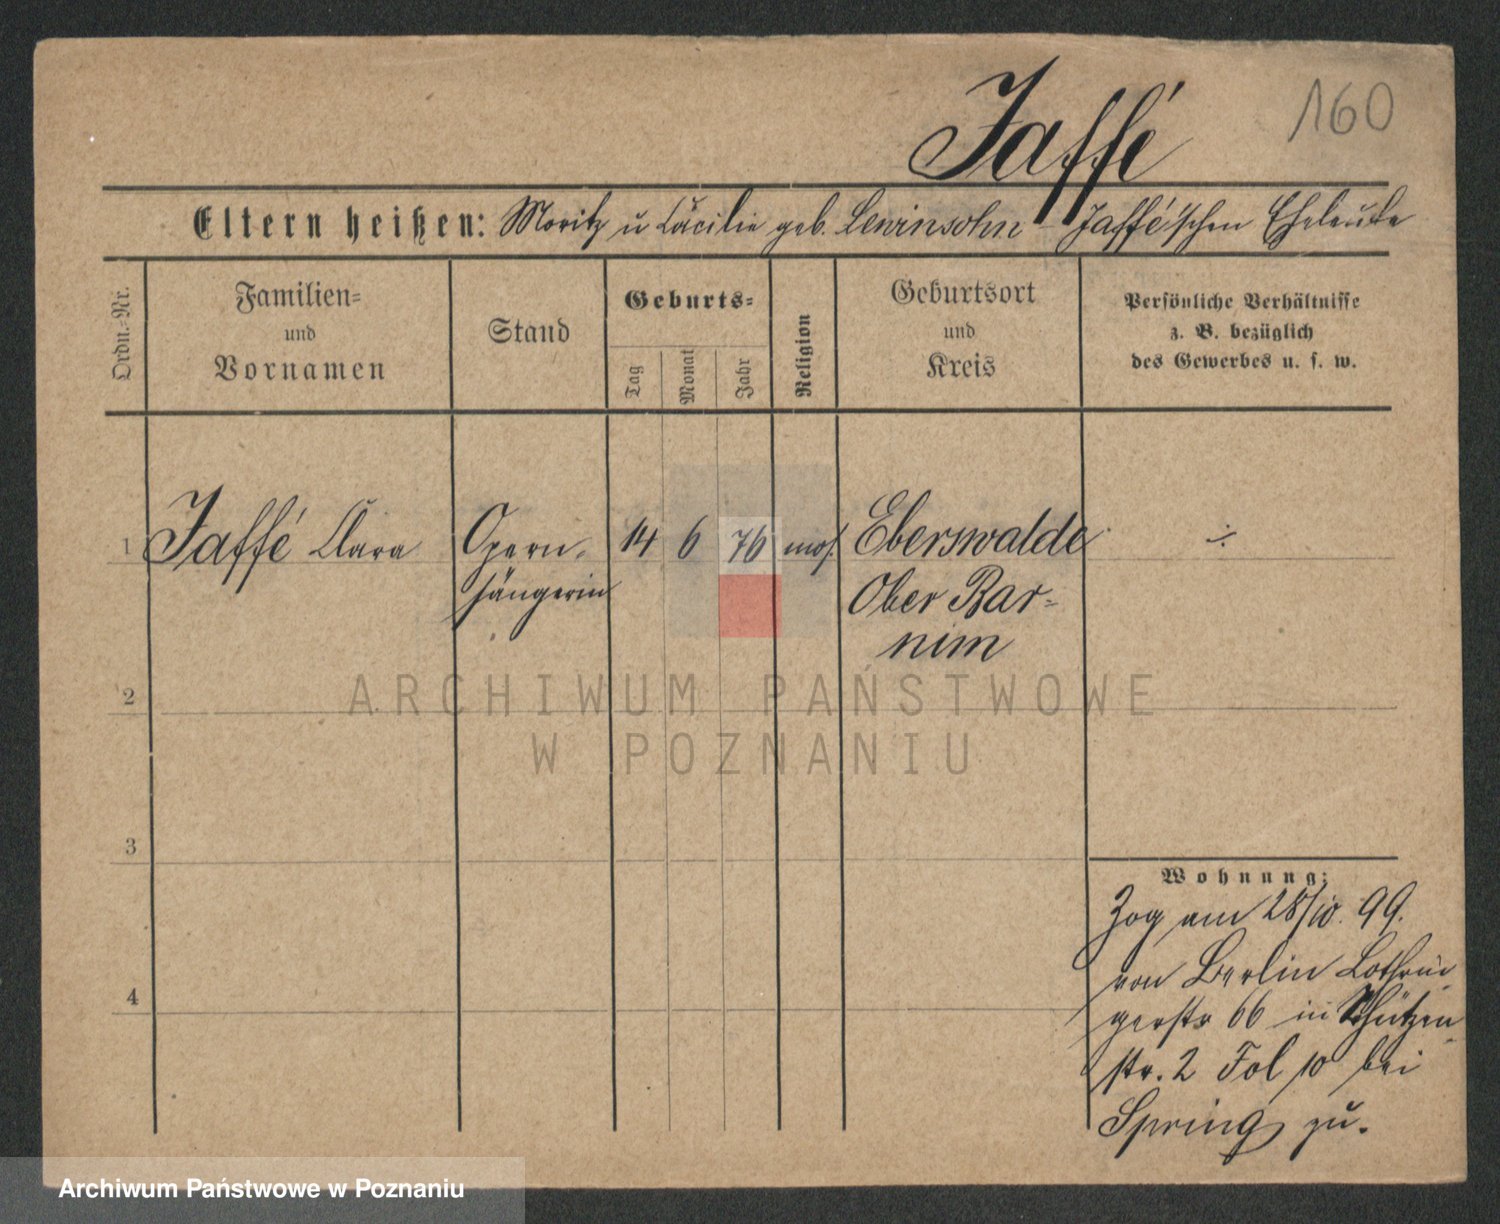 160
Jaffé
Eltern heißen: Moritz u Cäcilie geb. Lewinsohn - Jaffé'schen Eheleute
Ordn.-Nr.
Familien-
und
Vornamen
Stand
Geburts-
Tag
Monat
Jahr
Religion
Geburtsort
und
Kreis
Persönliche Verhältnisse
z. B. bezüglich
des Gewerbes u. s. w.
1 Jaffé Clara Opern- 14 6 76 mos. Eberswalde ÷
sängerin Ober Bar-
nim
2
ARCHIWUM PAŃSTWOWE
W POZNANIU
3
Wohnung:
Zog am 28/10. 99.
von Berlin Lothrin
4
gerstr 66 in Schützen-
str. 2 Fol 10 bei
Spring zu.
Archiwum Państwowe w Poznaniu